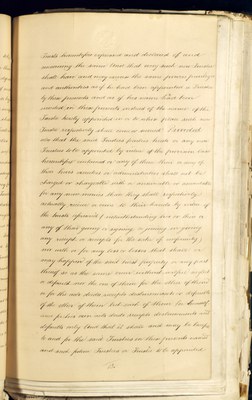 Trusts hereinbefore expressed and declared of and
concerning the same And that every such new Trustee
shall have and may exercise the same powers privileges
and authorities as if he had been appointed a Trustee
by these presents and as if his name had been
inserted in these presents instead of the name of the
Trustee hereby appointed in or to whose place such new
Trustee respectively shall
also that the said Trustees parties hereto or any new
Trustees to be appointed by virtue of the provision
hereinbefore contained or any of them their or any of
their heirs executors or administrators shall not be
charged or chargeable with or accountable or answerable
for any more monies than they shall respectively
actually receive or come to their hands by virtue of
the trusts aforesaid notwithstanding his or their or
any of their giving or signing or joining in giving
any receipt or receipts for the sake of conformity
nor with or for any loss or losses that shall or
may happen of the said trust property or any part
thereof so as the same
or default nor the one of them for the other of them
or for the acts deeds receipts or defaults
of the other of them but each of them for himself
and for his own acts deeds receipts and
defaults only And that it shall and may be lawful
to and for the said Trustees in these presents named
and such future Trustees or Trustee to be appointed